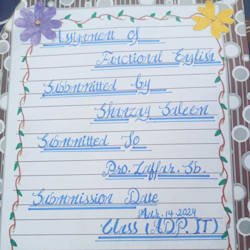 Assignment of
Functional English
Submmitted by
Shanzay Saleem
Submmitted To
Pro. Zaffar. Sb.
Submmission Date
Mar. 14. 2024
Class (ADP. IT)